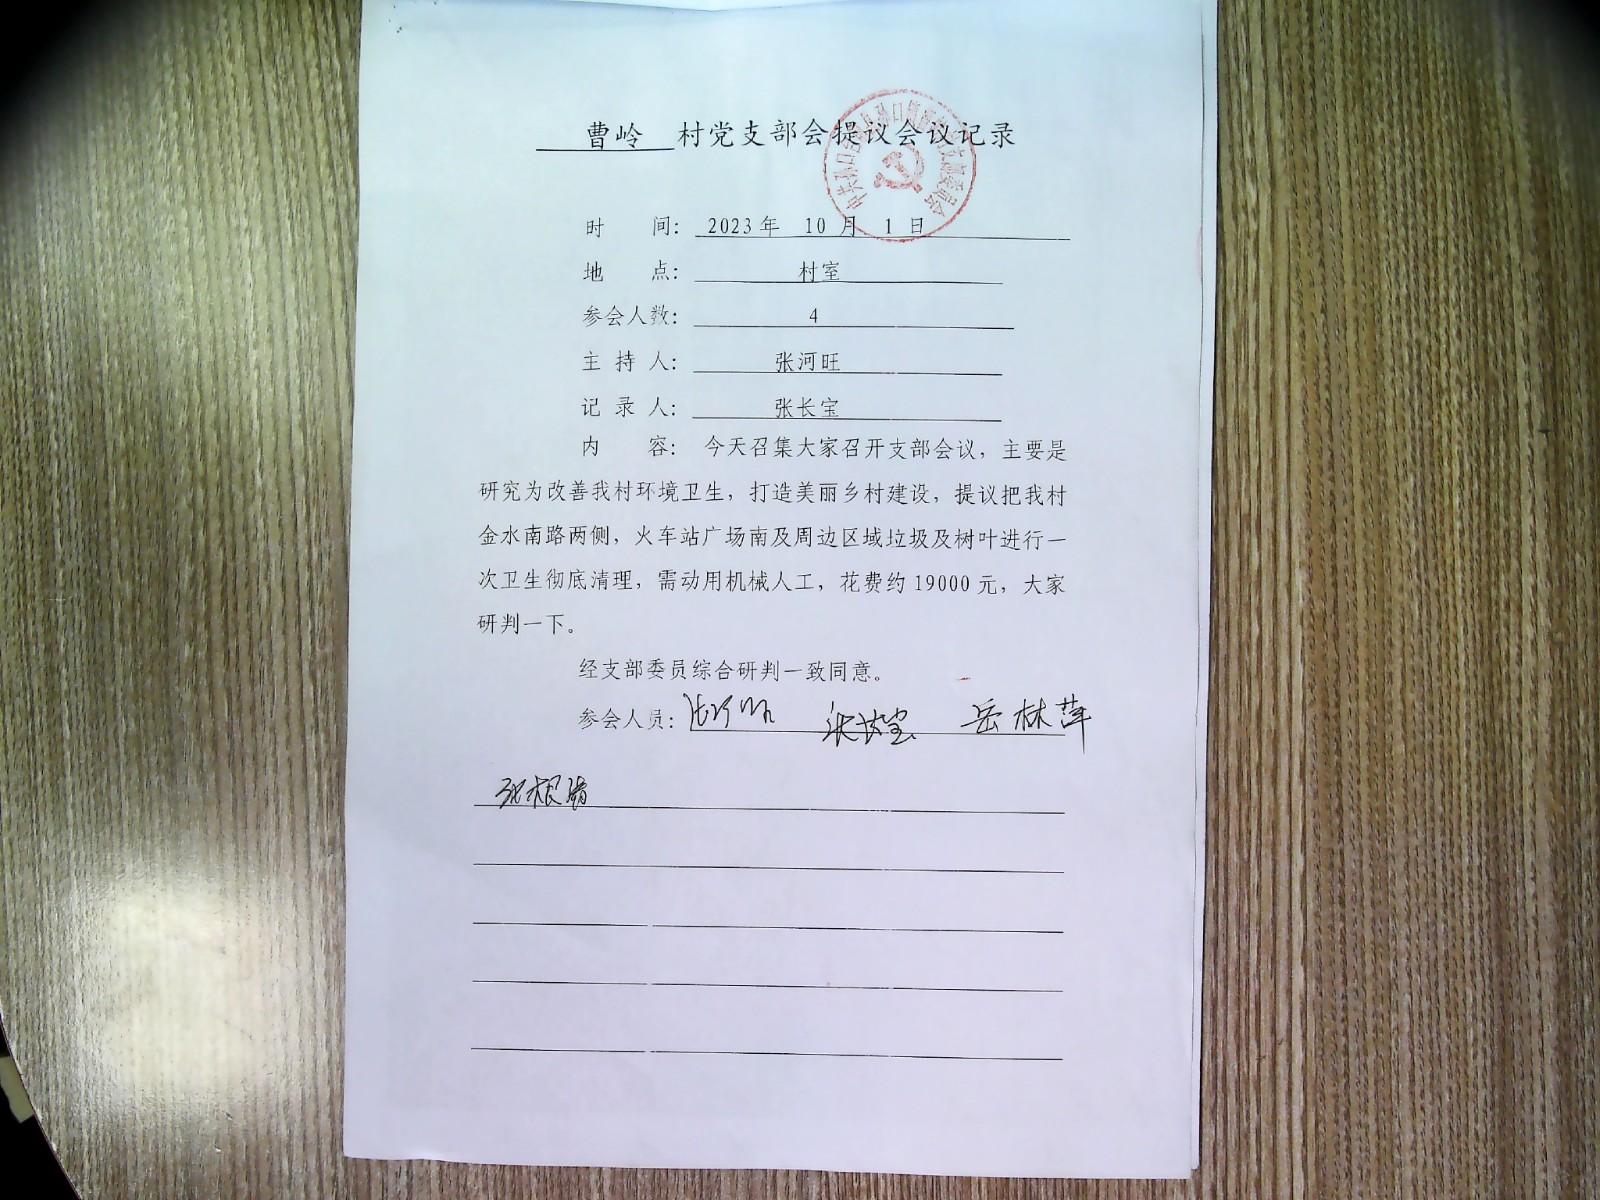 曹岭 村党支部会提议会议记录
时 间： 2023年 10 月 1 日
地 点： 村室
参会人数： 4
主 持 人： 张河旺
记 录 人： 张长宝
内 容： 今天召集大家召开支部会议，主要是
研究为改善我村环境卫生，打造美丽乡村建设，提议把我村
金水南路两侧，火车站广场南及周边区域垃圾及树叶进行一
次卫生彻底清理，需动用机械人工，花费约 19000 元，大家
研判一下。
经支部委员综合研判一致同意。
参会人员： 张河旺 张长宝 岳林萍